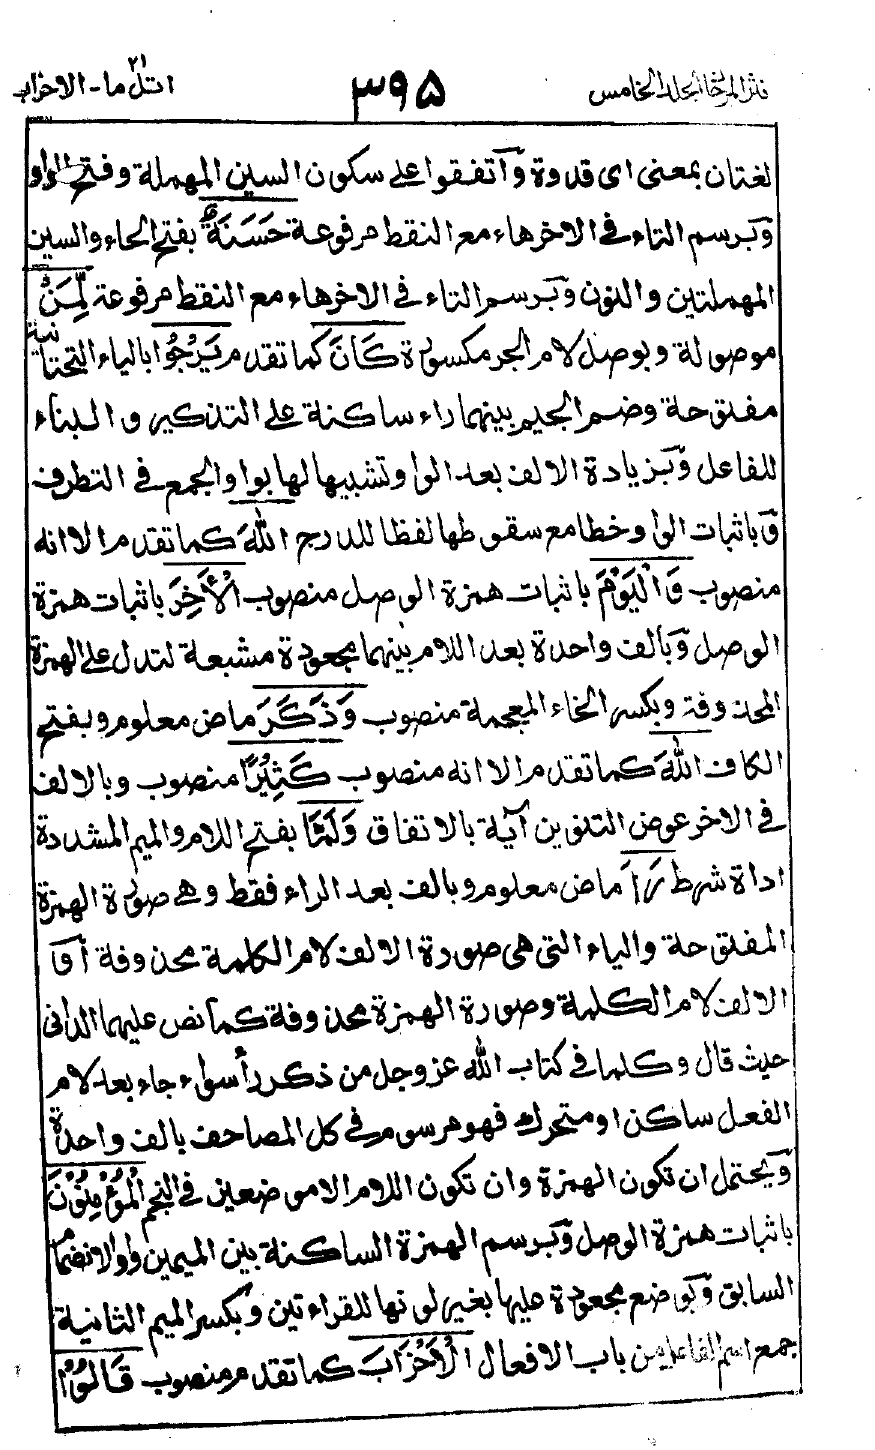 نثر المرجان المجلد الخامس ٣٩٥ اتل ما - الاحزاب ٢١
لغتان بمعنى اى قدوة وَاتفقوا على سكون السين المهملة وفتح الواو
وَبرسم التاء فى الاخرهاء مع النقط مرفوعة حَسَنَةٌ بفتح الحاء والسين
المهملتين والنون وبرسم التاء فى الاخرهاء مع النقط مرفوعة لِّمَنْ
موصولة وبوصل لام الجر مكسورة كَانَ كما تقدم يَرْجُوا بالياء التحتانية
مفتوحة وضم الجيم بينهما راء ساكنة على التذكير و البناء
للفاعل وَبزيادة الالف بعد الواو تشبيها لها بواو الجمع فى التطرف
وَباثبات الواو خطا مع سقوطها لفظا للدرج اللهَ كما تقدم الا انه
منصوب وَالْيَوْمَ باثبات همزة الوصل منصوب الْأٰخِرَ باثبات همزة
الوصل وَبألف واحدة بعد اللام بينهما مجعودة مشبعة لتدل على الهمزة
المحذوفة وبكسر الخاء المعجمة منصوب وَذَكَرَ ماض معلوم وبفتح
الكاف اللهَ كما تقدم الا انه منصوب كَثِيْرًا منصوب وبالالف
فى الاخر عوض التنوين آية بالاتفاق وَلَمَّا بفتح اللام والميم المشددة
اداة شرط رَاَ ماض معلوم وبالف بعد الراء فقط وهى صورة الهمزة
المفتوحة والياء التى هى صورة الالف لام الكلمة محذوفة أوَ
الالف لام الكلمة وصورة الهمزة محذوفة كما نص عليهما الدانى
حيث قال وكلما فى كتاب الله عز وجل من ذكر رأسواء جاء بعد لام
الفعل ساكن او متحرك فهو مرسوم فى كل المصاحف بالف واحدة
وَيحتمل ان تكون الهمزة وان تكون اللام الا موضعين فى النجم الْمُؤْمِنُوْنَ
باثبات همزة الوصل وَبرسم الهمزة الساكنة بين الميمين واوا لانضمام
السابق وَبوضع مجعودة عليها بغير لونها للقراءتين وَبكسر الميم الثانية
جمع اسم الفاعل من باب الافعال الْاَحْزَابَ كما تقدم منصوب قَالُوْا